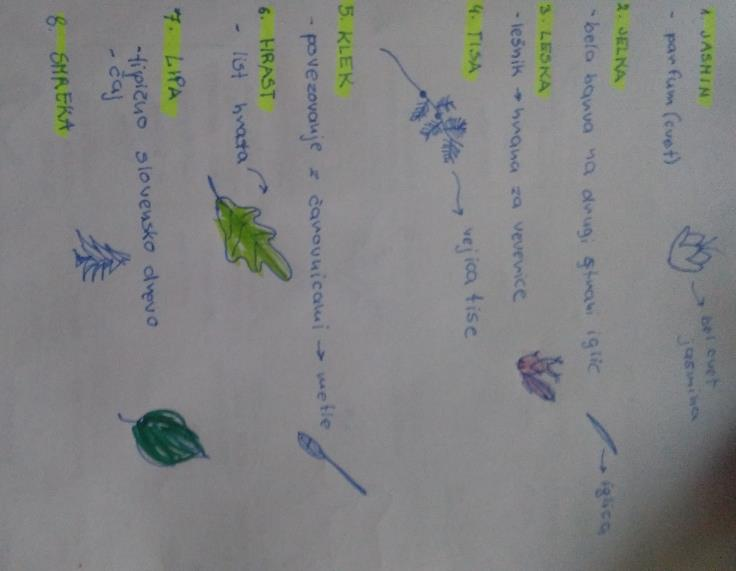 1. JASMIN
- parfum (cvet)
→ bel cvet
jasmina
2. JELKA
- bela barva na drugi strani iglic
→ iglica
3. LESKA
- lešnik → hrana za veverice
4. TISA
→ vejica tise
5. KLEK
- povezovanje z čarovnicami → metle
6. HRAST
- list hrasta
7. LIPA
- tipično slovensko drevo
- čaj
8. SMREKA